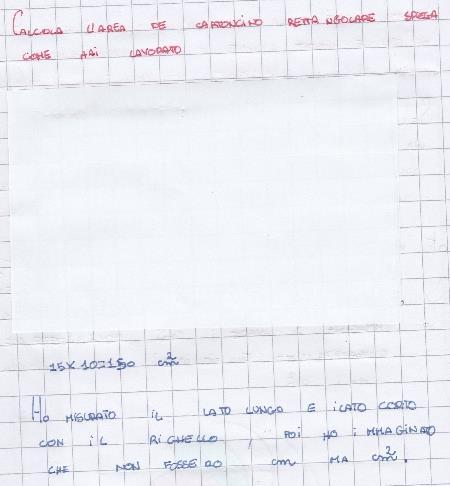 CALCOLA L'AREA DE CARTONCINO RETTANGOLARE SPIEGA
COME HAI LAVORATO
15X10=150 cm²
HO MISURATO IL LATO LUNGO E ILATO CORTO
CON IL RIGHELLO, POI HO IMMAGINATO
CHE NON FOSSERO cm MA cm².